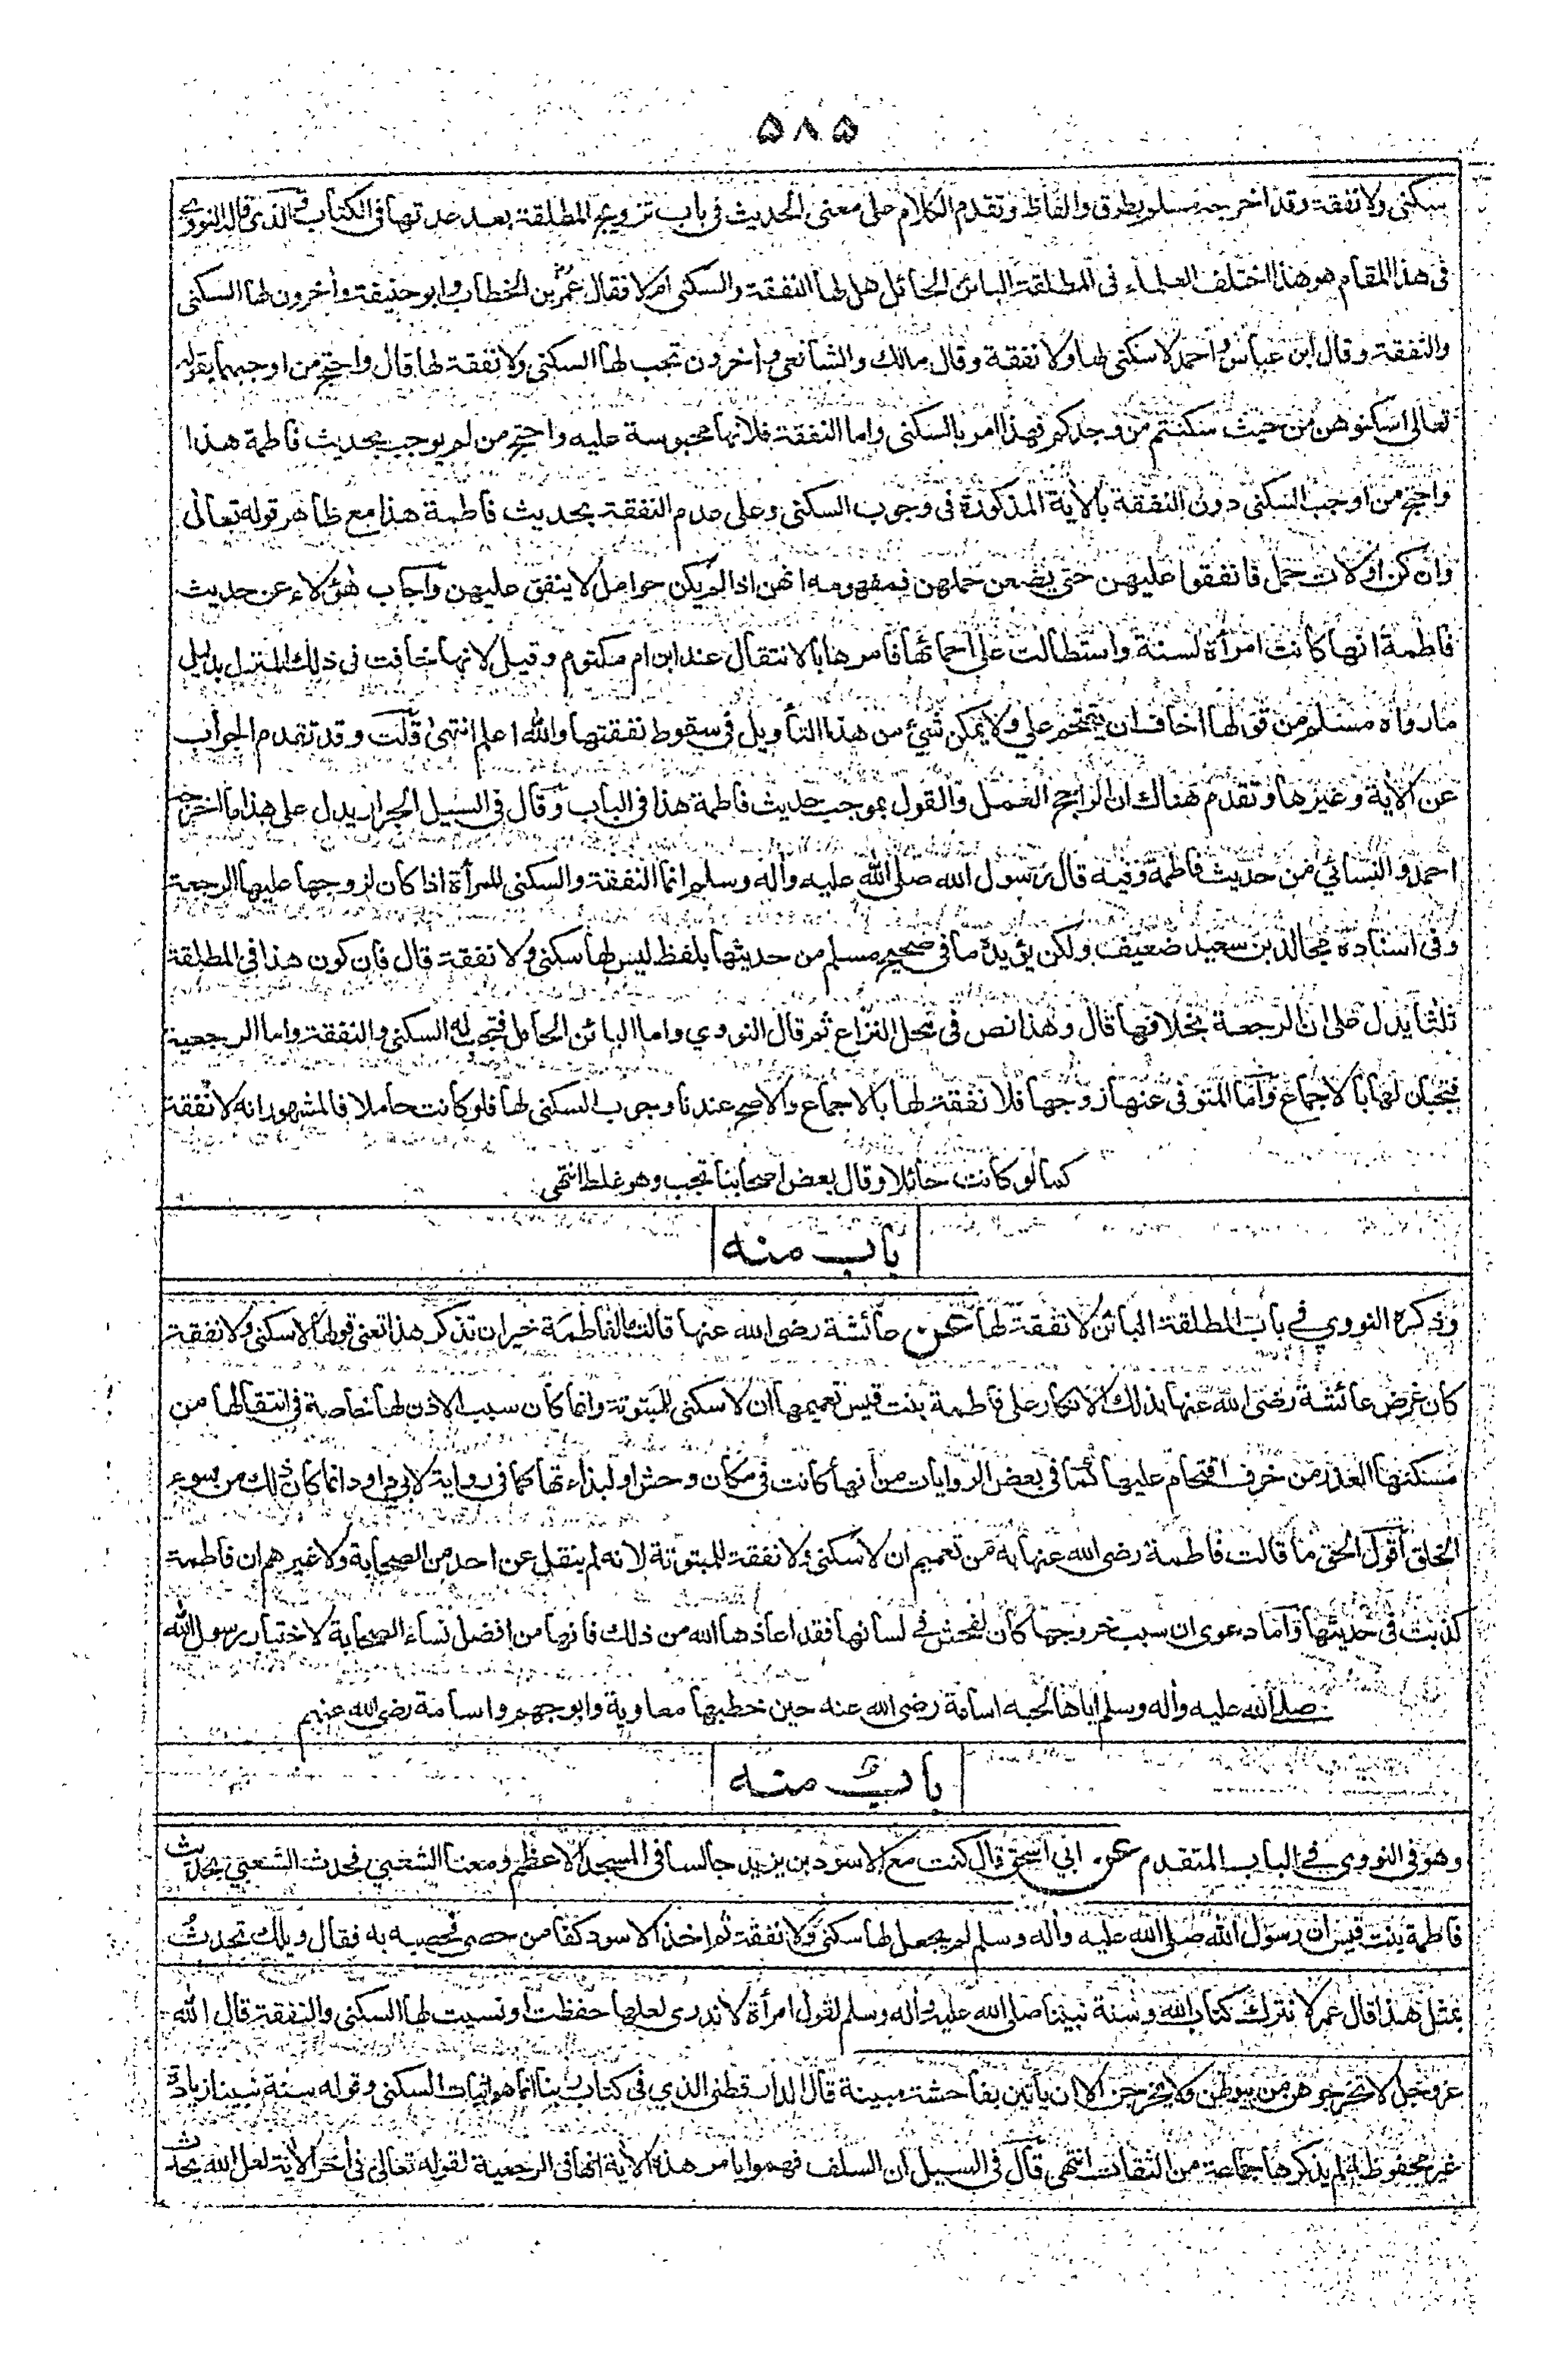 ۵۸۵
سكنى ولا نفقة وقد اخرجه مسلم بطرق والفاظ وتقدم الكلام على معنى الحديث في باب تزويج المطلقة بعد عدتها في الكتاب والذي قاله النووي
في هذا المقام هو هذا اختلف العلماء في المطلقة البائن الحائل هل لها النفقة والسكنى ام لا فقال عمر بن الخطاب وابو حنيفة وأخرون لها السكنى
والنفقة وقال ابن عباس واحمد لا سكنى لها ولا نفقة وقال مالك والشافعي وأخرون تجب لها السكنى ولا نفقة لها قال واحتج من اوجبهما بقوله
تعالى اسكنوهن من حيث سكنتم من وجدكم فهذا امر بالسكنى واما النفقة فلانها محبوسة عليه واحتج من لم يوجب بحديث فاطمة هذا
واحتج من اوجب السكنى دون النفقة بالأية المذكورة في وجوب السكنى وعلى عدم النفقة بحديث فاطمة هذا مع ظاهر قوله تعالى
وان كن اولات حمل فانفقوا عليهن حتى يضعن حملهن فمفهومه انهن اذا لم يكن حوامل لا ينفق عليهن واجاب هؤلاء عن حديث
فاطمة انها كانت امرأة لسنة واستطالت على احمائها فامرها بالانتقال عند ابن ام مكتوم وقيل لانها خافت في ذلك المنزل بدليل
ما رواه مسلم من قولها اخاف ان يقتحم علي ولا يمكن شيء من هذا التأويل في سقوط نفقتها والله اعلم انتهى قلت وقد تقدم الجواب
عن الأية وغيرها وتقدم هناك ان الراجح العمل والقول بموجب حديث فاطمة هذا في الباب وقال في السيل الجرار يدل على هذا ما اخرجه
احمد والنسائي من حديث فاطمة وفيه قال رسول الله صلى الله عليه وأله وسلم انما النفقة والسكنى للمرأة اذا كان لزوجها عليها الرجعة
وفي اسناده مجالد بن سعيد ضعيف ولكن يؤيده ما في صحيح مسلم من حديثها بلفظ ليس لها سكنى ولا نفقة قال فان كون هذا في المطلقة
ثلثا يدل على ان الرجعة بخلافها قال وهذا نص في محل النزاع ثم قال النووي واما البائن الحامل فتجب لها السكنى والنفقة واما الرجعية
فتجبان لها بالاجماع واما المتوفى عنها زوجها فلا نفقة لها بالاجماع والاصح عندنا وجوب السكنى لها فلو كانت حاملا فالمشهور انه لا نفقة
كما لو كانت حائلا وقال بعض اصحابنا تجب وهو غلط انتهى
باب منه
وذكره النووي في باب المطلقة البائن لا نفقة لها عن عائشة رضي الله عنها قالت ما لفاطمة خير ان تذكر هذا تعني قولها لا سكنى ولا نفقة
كان غرض عائشة رضي الله عنها بذلك الانكار على فاطمة بنت قيس تعميمها ان لا سكنى للمبتوتة وانما كان سبب الاذن لها خاصة في انتقالها من
مسكنها العذر من خوف اقتحام عليها كما في بعض الروايات من انها كانت في مكان وحش او لبذاءتها كما في رواية لابي داود انما كان ذلك من سوء
الخلق اقول الحق ما قالت فاطمة رضي الله عنها به من تعميم ان لا سكنى ولا نفقة للمبتوتة لانه لم ينقل عن احد من الصحابة ولا غيرهم ان فاطمة
كذبت في حديثها واما دعوى ان سبب خروجها كان لفحش في لسانها فقد اعاذها الله من ذلك فانها من افضل نساء الصحابة لاختيار رسول الله
صلى الله عليه وأله وسلم اياها لحبه اسامة رضي الله عنه حين خطبها معاوية وابو جهم واسامة رضي الله عنهم
باب منه
وهو في النووي في الباب المتقدم عن ابي اسحق قال كنت مع الاسود بن يزيد جالسا في المسجد الاعظم ومعنا الشعبي فحدث الشعبي بحديث
فاطمة بنت قيس ان رسول الله صلى الله عليه وأله وسلم لم يجعل لها سكنى ولا نفقة ثم اخذ الاسود كفا من حصى فحصبه به فقال ويلك تحدث
بمثل هذا قال عمر لا نترك كتاب الله وسنة نبينا صلى الله عليه وأله وسلم لقول امرأة لا ندري لعلها حفظت او نسيت لها السكنى والنفقة قال الله
عز وجل لا تخرجوهن من بيوتهن ولا يخرجن الا ان يأتين بفاحشة مبينة قال الدارقطني الذي في كتاب ربنا انما هو اثبات السكنى وقوله سنة نبينا زيادة
غير محفوظة لم يذكرها جماعة من الثقات انتهى قال في السيل ان السلف فهموا ما مر هذه الأية انها في الرجعية لقوله تعالى في أخر الأية لعل الله يحدث